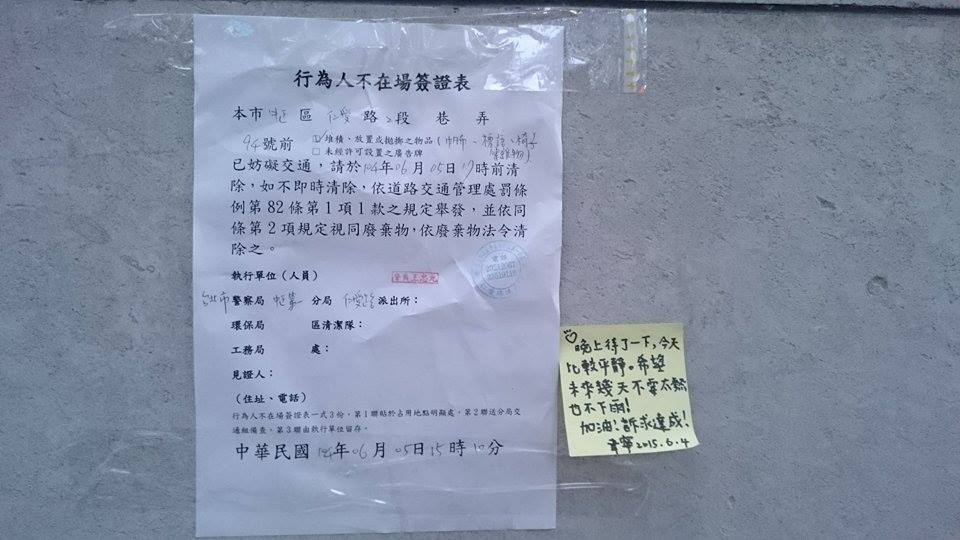 行為人不在場簽證表
本市 中正 區 仁愛 路 2 段 巷 弄
94號前 ☑堆積、放置或拋擲之物品(帳棚、標語、椅子
等雜物)
□未經許可設置之廣告牌
已妨礙交通，請於104年06月05日17時前清
除，如不即時清除，依道路交通管理處罰條
例第82條第1項1款之規定舉發，並依同
條第2項規定視同廢棄物，依廢棄物法令清
除之。
執行單位（人員）
台北市警察局 中正第 分局 仁愛路 派出所：
環保局 區清潔隊：
工務局 處：
見證人：
（住址、電話）
行為人不在場簽證表一式3份，第1聯帖於占用地點明顯處，第2聯送分局交
通組備查，第3聯由執行單位留存。
中華民國104年06月05日15時10分
電話
晚上待了一下，今天
比較平靜。希望
未來幾天不要太熱
也不下雨！
加油！訴求達成！
2015.6.4